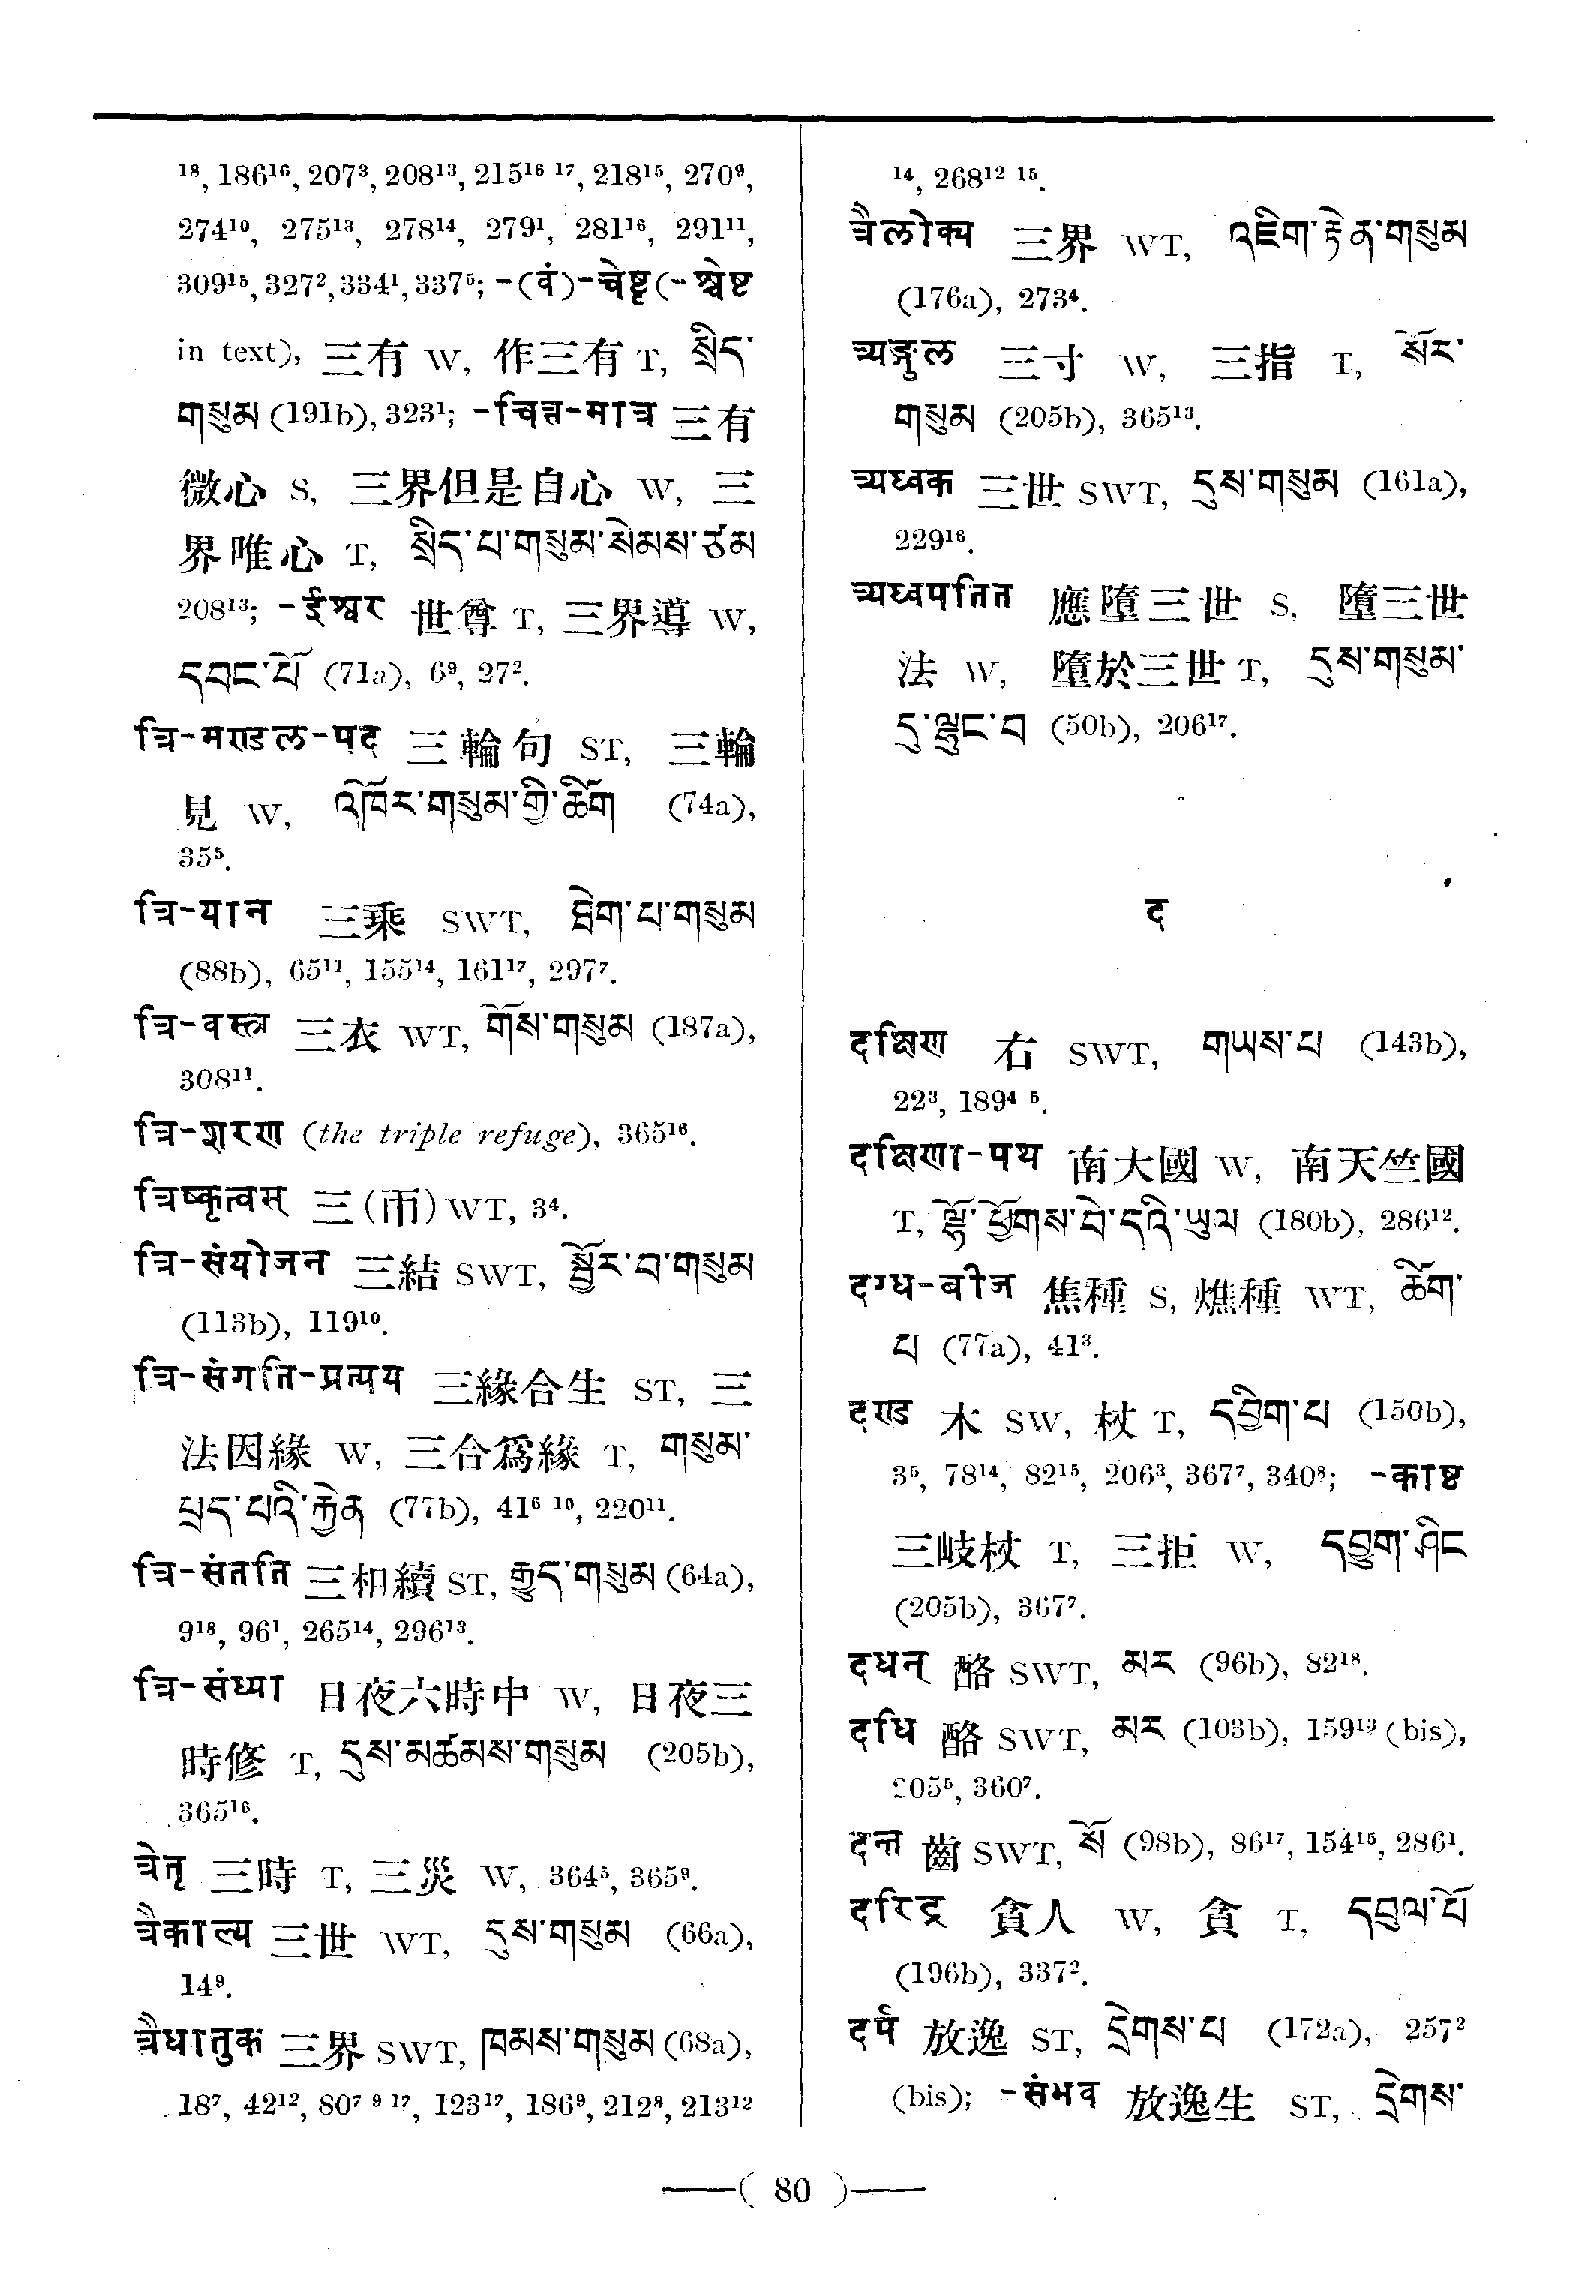 ¹⁸, 186¹⁶, 207³, 208¹³, 215¹⁶ ¹⁷, 218¹⁵, 270⁹,
274¹⁰, 275¹³, 278¹⁴, 279¹, 281¹⁶, 291¹¹,
309¹⁵, 327², 334¹, 337⁵; -(वं)-चेष्ट (-श्चेष्ट
in text), 三有 W, 作三有 T, སྲིད་
གསུམ (191b), 323¹; -चित्त-मात्र 三有
微心 S, 三界但是自心 W, 三
界唯心 T, སྲིད་པ་གསུམ་སེམས་ཙམ
208¹³; -ईश्वर 世尊 T, 三界導 W,
དབང་པོ (71a), 6⁹, 27².
त्रि-मण्डल-पद 三輪句 ST, 三輪
見 W, འཁོར་གསུམ་གྱི་ཚིག (74a),
35⁵.
त्रि-यान 三乘 SWT, ཐེག་པ་གསུམ
(88b), 65¹¹, 155¹⁴, 161¹⁷, 297⁷.
त्रि-वस्त्र 三衣 WT, གོས་གསུམ (187a),
308¹¹.
त्रि-शरण (the triple refuge), 365¹⁶.
त्रिष्कृत्वस् 三(雨) WT, 3⁴.
त्रि-संयोजन 三結 SWT, སྦྱོར་བ་གསུམ
(113b), 119¹⁰.
त्रि-संगति-प्रत्यय 三緣合生 ST, 三
法因緣 W, 三合爲緣 T, གསུམ་
ཕྲད་པའི་རྐྱེན (77b), 41⁶ ¹⁰, 220¹¹.
त्रि-संतति 三相續 ST, རྒྱུད་གསུམ (64a),
9¹⁸, 96¹, 265¹⁴, 296¹³.
त्रि-संध्या 日夜六時中 W, 日夜三
時修 T, དུས་མཚམས་གསུམ (205b),
365¹⁶.
त्रेतृ 三時 T, 三災 W, 364⁵, 365⁹.
त्रैकाल्य 三世 WT, དུས་གསུམ (66a),
14⁹.
त्रैधातुक 三界 SWT, ཁམས་གསུམ (68a),
18⁷, 42¹², 80⁷ ⁹ ¹⁷, 123¹⁷, 186⁹, 212⁸, 213¹²
¹⁴, 268¹² ¹⁵.
त्रैलोक्य 三界 WT, འཇིག་རྟེན་གསུམ
(176a), 273⁴.
त्र्यङ्गुल 三寸 W, 三指 T, སོར་
གསུམ (205b), 365¹³.
त्र्यध्वक 三世 SWT, དུས་གསུམ (161a),
229¹⁶.
त्र्यध्वपतित 應墮三世 S, 墮三世
法 W, 墮於三世 T, དུས་གསུམ་
དུ་ལྷུང་བ (50b), 206¹⁷.
द
दक्षिण 右 SWT, གཡས་པ (143b),
22³, 189⁴ ⁵.
दक्षिणा-पथ 南大國 W, 南天竺國
T, ལྷོ་ཕྱོགས་བེ་དའི་ཡུལ (180b), 286¹².
दग्ध-बीज 焦種 S, 燋種 WT, ཚིག་
པ (77a), 41³.
दण्ड 木 SW, 杖 T, དབྱིག་པ (150b),
3⁵, 78¹⁴, 82¹⁵, 206³, 367⁷, 340⁸; -काष्ठ
三岐杖 T, 三拒 W, དབྱུག་ཤིང
(205b), 367⁷.
दधन् 酪 SWT, མར (96b), 82¹⁸.
दधि 酪 SWT, མར (103b), 159¹³ (bis),
205⁵, 360⁷.
दन्त 齒 SWT, སོ (98b), 86¹⁷, 154¹⁵, 286¹.
दरिद्र 貧人 W, 貧 T, དབུལ་པོ
(196b), 337².
दर्प 放逸 ST, དྲེགས་པ (172a), 257²
(bis); -संभव 放逸生 ST, དྲེགས་
—( 80 )—